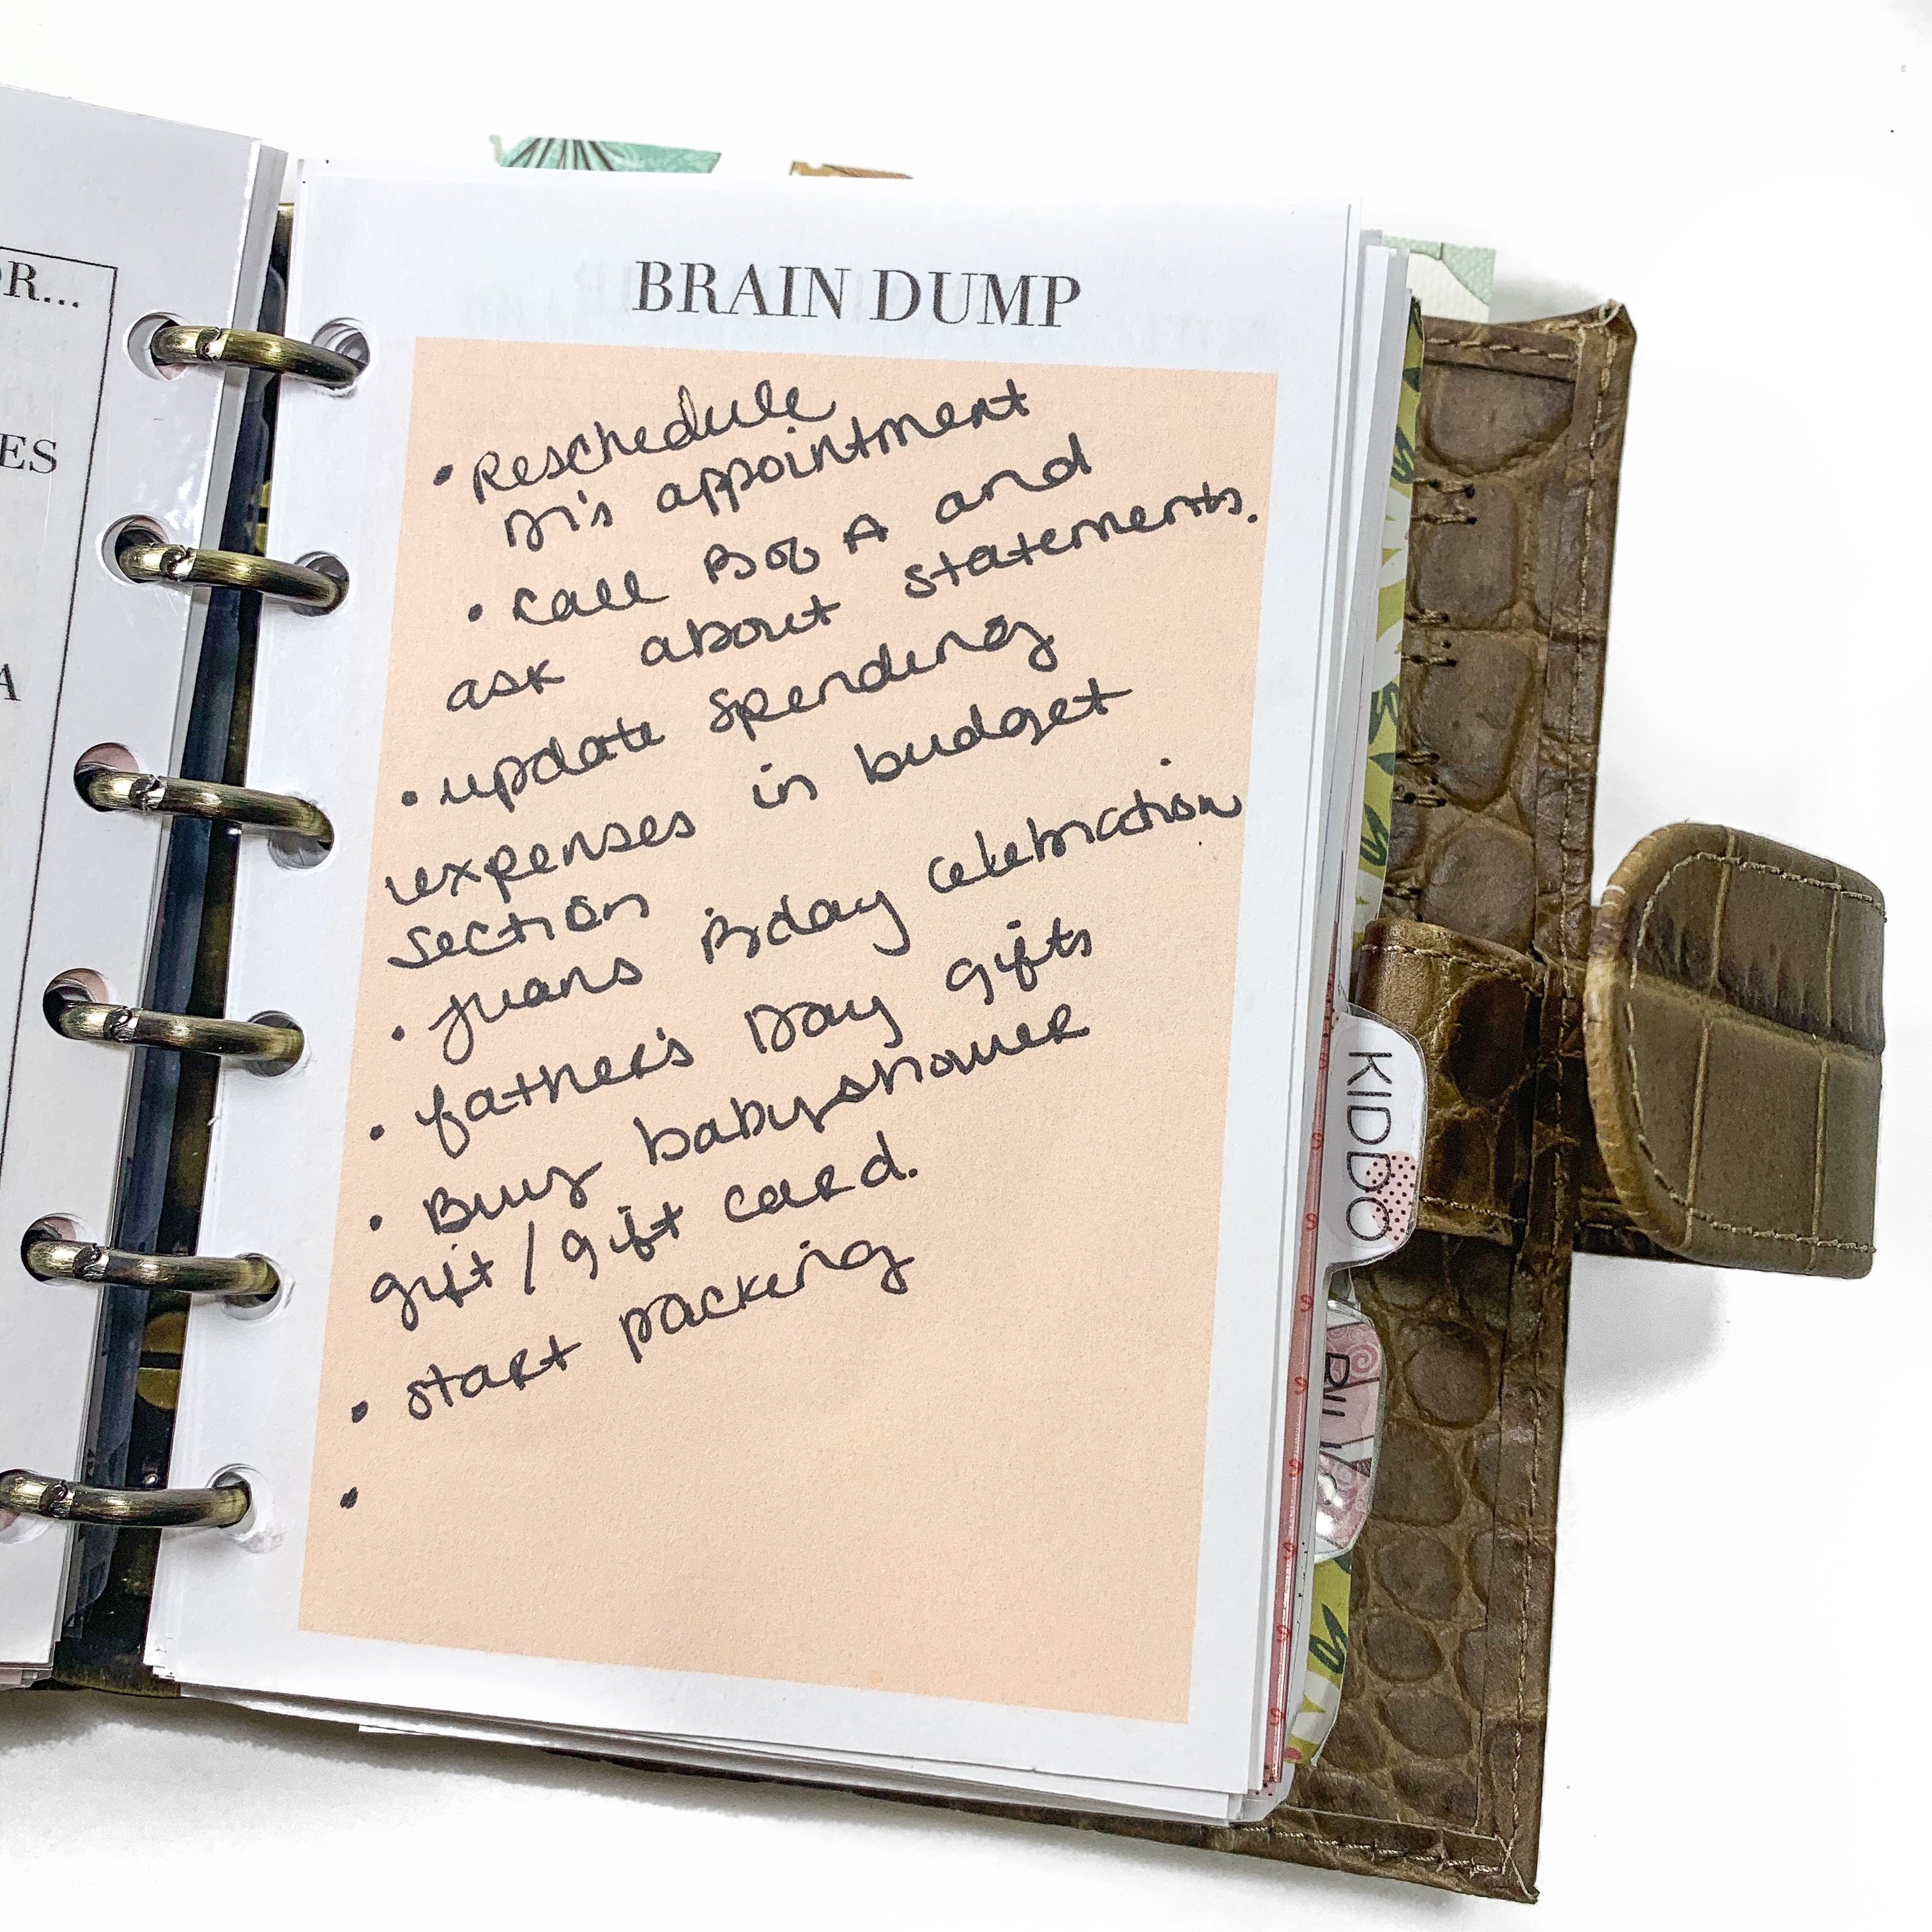 R...
ES
A
BRAIN DUMP
• Reschedule
appointment
• Call B of A and
ask about statements.
• update spending
expenses in budget
section
• Juans Bday celebration
• father's Day gifts
• Buy babyshower
gift / gift card.
• start packing
•
KIDDO